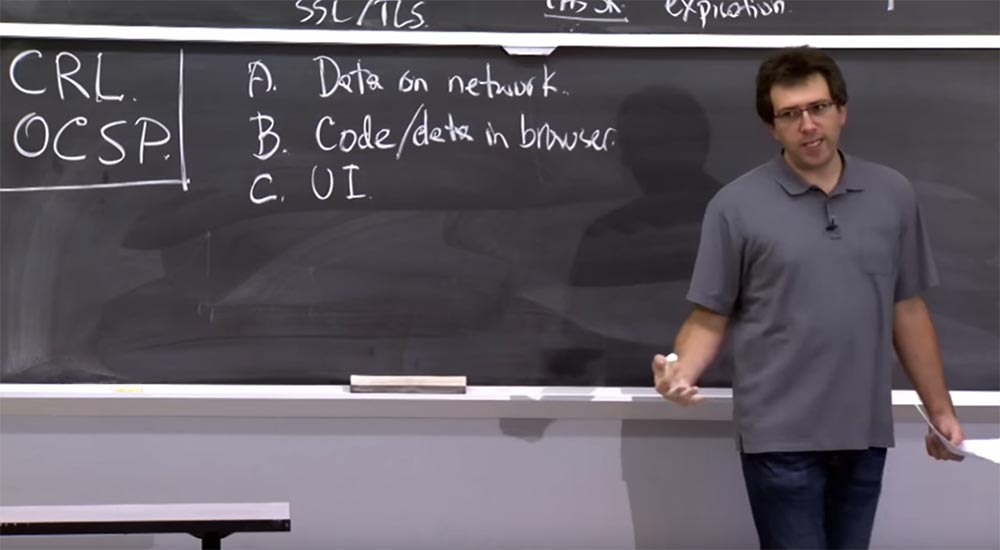 SSL/TLS.
expiration.
CRL.
OCSP.
A. Data on network.
B. Code/data in browser.
C. UI.